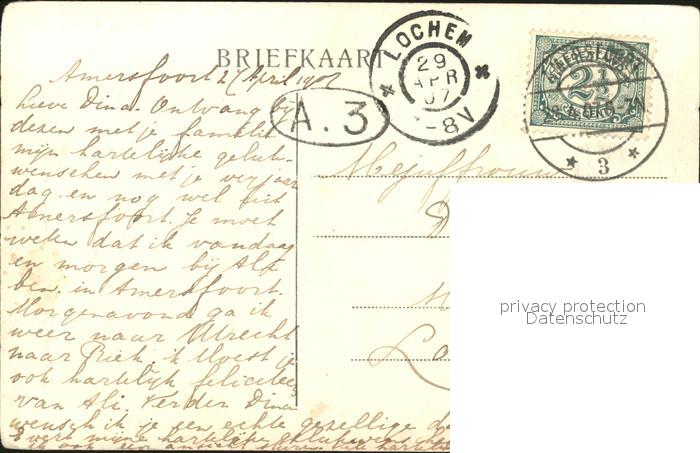 BRIEFKAART
LOCHEM
29
APR
07
-8V
A.3
2½
3
Amersfoort 27 April 1907
Lieve Dina. Ontvang bij
dezen met je familie
mijn hartelijke geluk-
wenschen met je verjaar
dag en nog wel uit
Amersfoort. Je moet
weten dat ik vandaag
en morgen bij Alf
ben in Amersfoort.
Morgenavond ga ik
weer naar Utrecht
naar Riek. k Moest je
ook hartelijk feliciteer
van Ali. Verder Dina
wensch ik je een echte gezellige
mijne hartelijke gelukwensch
ook een ansicht
Mejuffrouw
D
M
Lo
privacy protection
Datenschutz